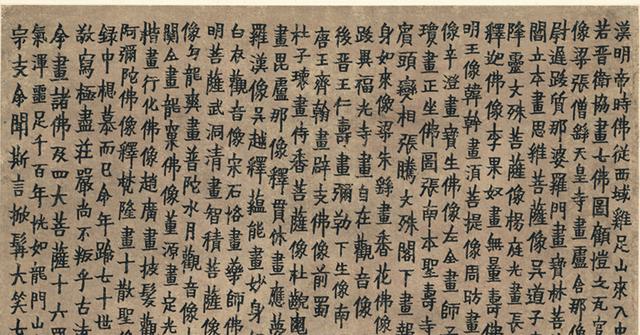 漢明帝時佛從西域雞足山來入
若晉衛協畫七佛圖顧愷之瓦官
像梁張僧繇天皇寺畫盧舍那像
尉遲跋質那婆羅門畫寶林菩薩
閻立本畫思維菩薩像吳道子
降靈文殊菩薩像楊庭光畫長
釋迦佛像李果奴畫無量壽
明王像韓幹畫須菩提像周昉畫
像辛澄畫寶生佛像左全畫師
瓊畫正坐佛圖張南本聖壽寺
賓頭變相張騰文殊閣下畫報
身如來像梁朱繇畫香花佛像
跋異福光寺畫自在觀音像
後晉王仁壽畫彌勒下生像南
唐王齊翰畫辟支佛像前蜀
杜子瓌畫侍香菩薩像杜齯龜
畫毘盧那像釋貫休畫應夢
羅漢像吳越釋蘊能畫妙身
白衣觀音像宋石恪畫藥師佛
明菩薩武洞清畫智積菩薩像
像句龍爽畫普陀水月觀音像
關仝畫龍窠佛像董源畫定光
楷畫行化佛像趙廣畫披髮觀
阿彌陀佛像釋梵隆畫十散聖像
錄中想慕而已命年踰七十世
敬寫極盡莊嚴尚不叛乎古
今畫諸佛及四大菩薩十六羅
氣渾靈足千百年恍如龍門山
宗支命聞斯言掀髯大笑